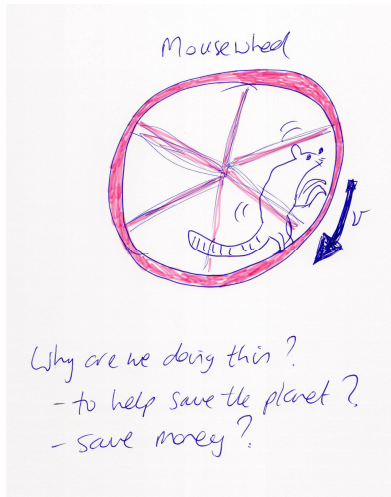 Mousewheel
v
Why are we doing this?
- to help save the planet?
- save money?